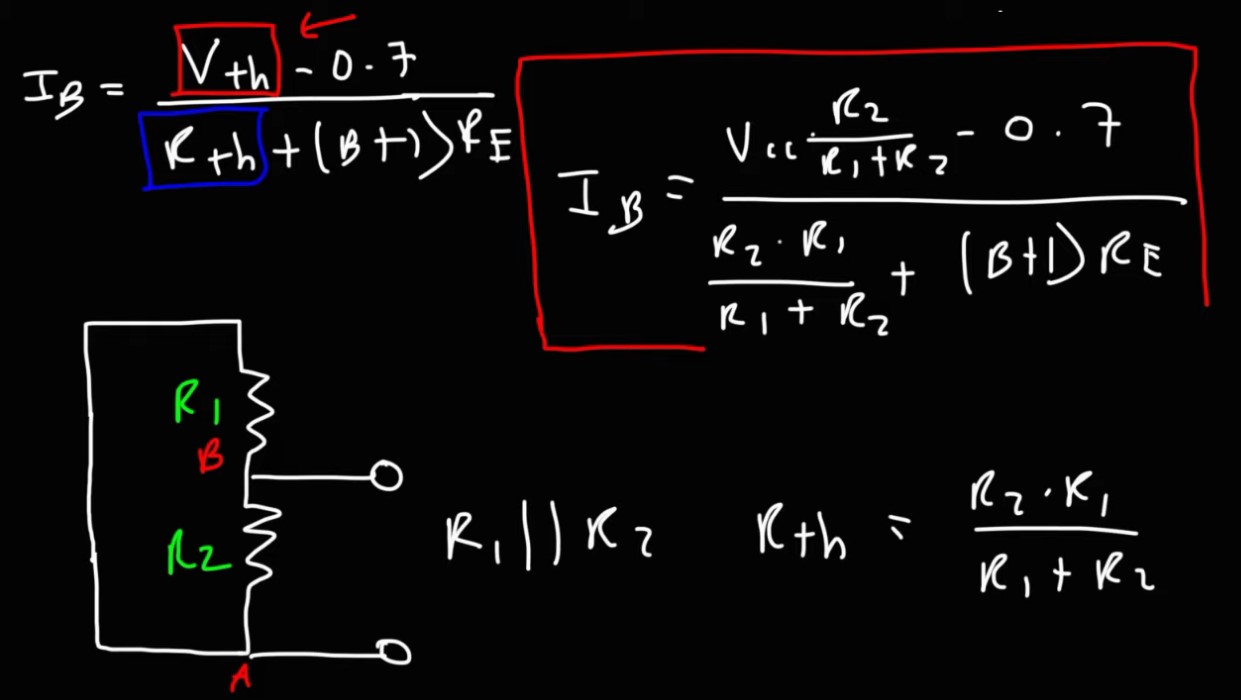 I_B = (V_th - 0.7) / (R_th + (B+1) R_E)
I_B = (V_CC R_2 / (R_1 + R_2) - 0.7) / (R_2 · R_1 / (R_1 + R_2) + (B+1) R_E)
R_1
B
R_2
A
R_1 || R_2
R_th = R_2 · R_1 / (R_1 + R_2)